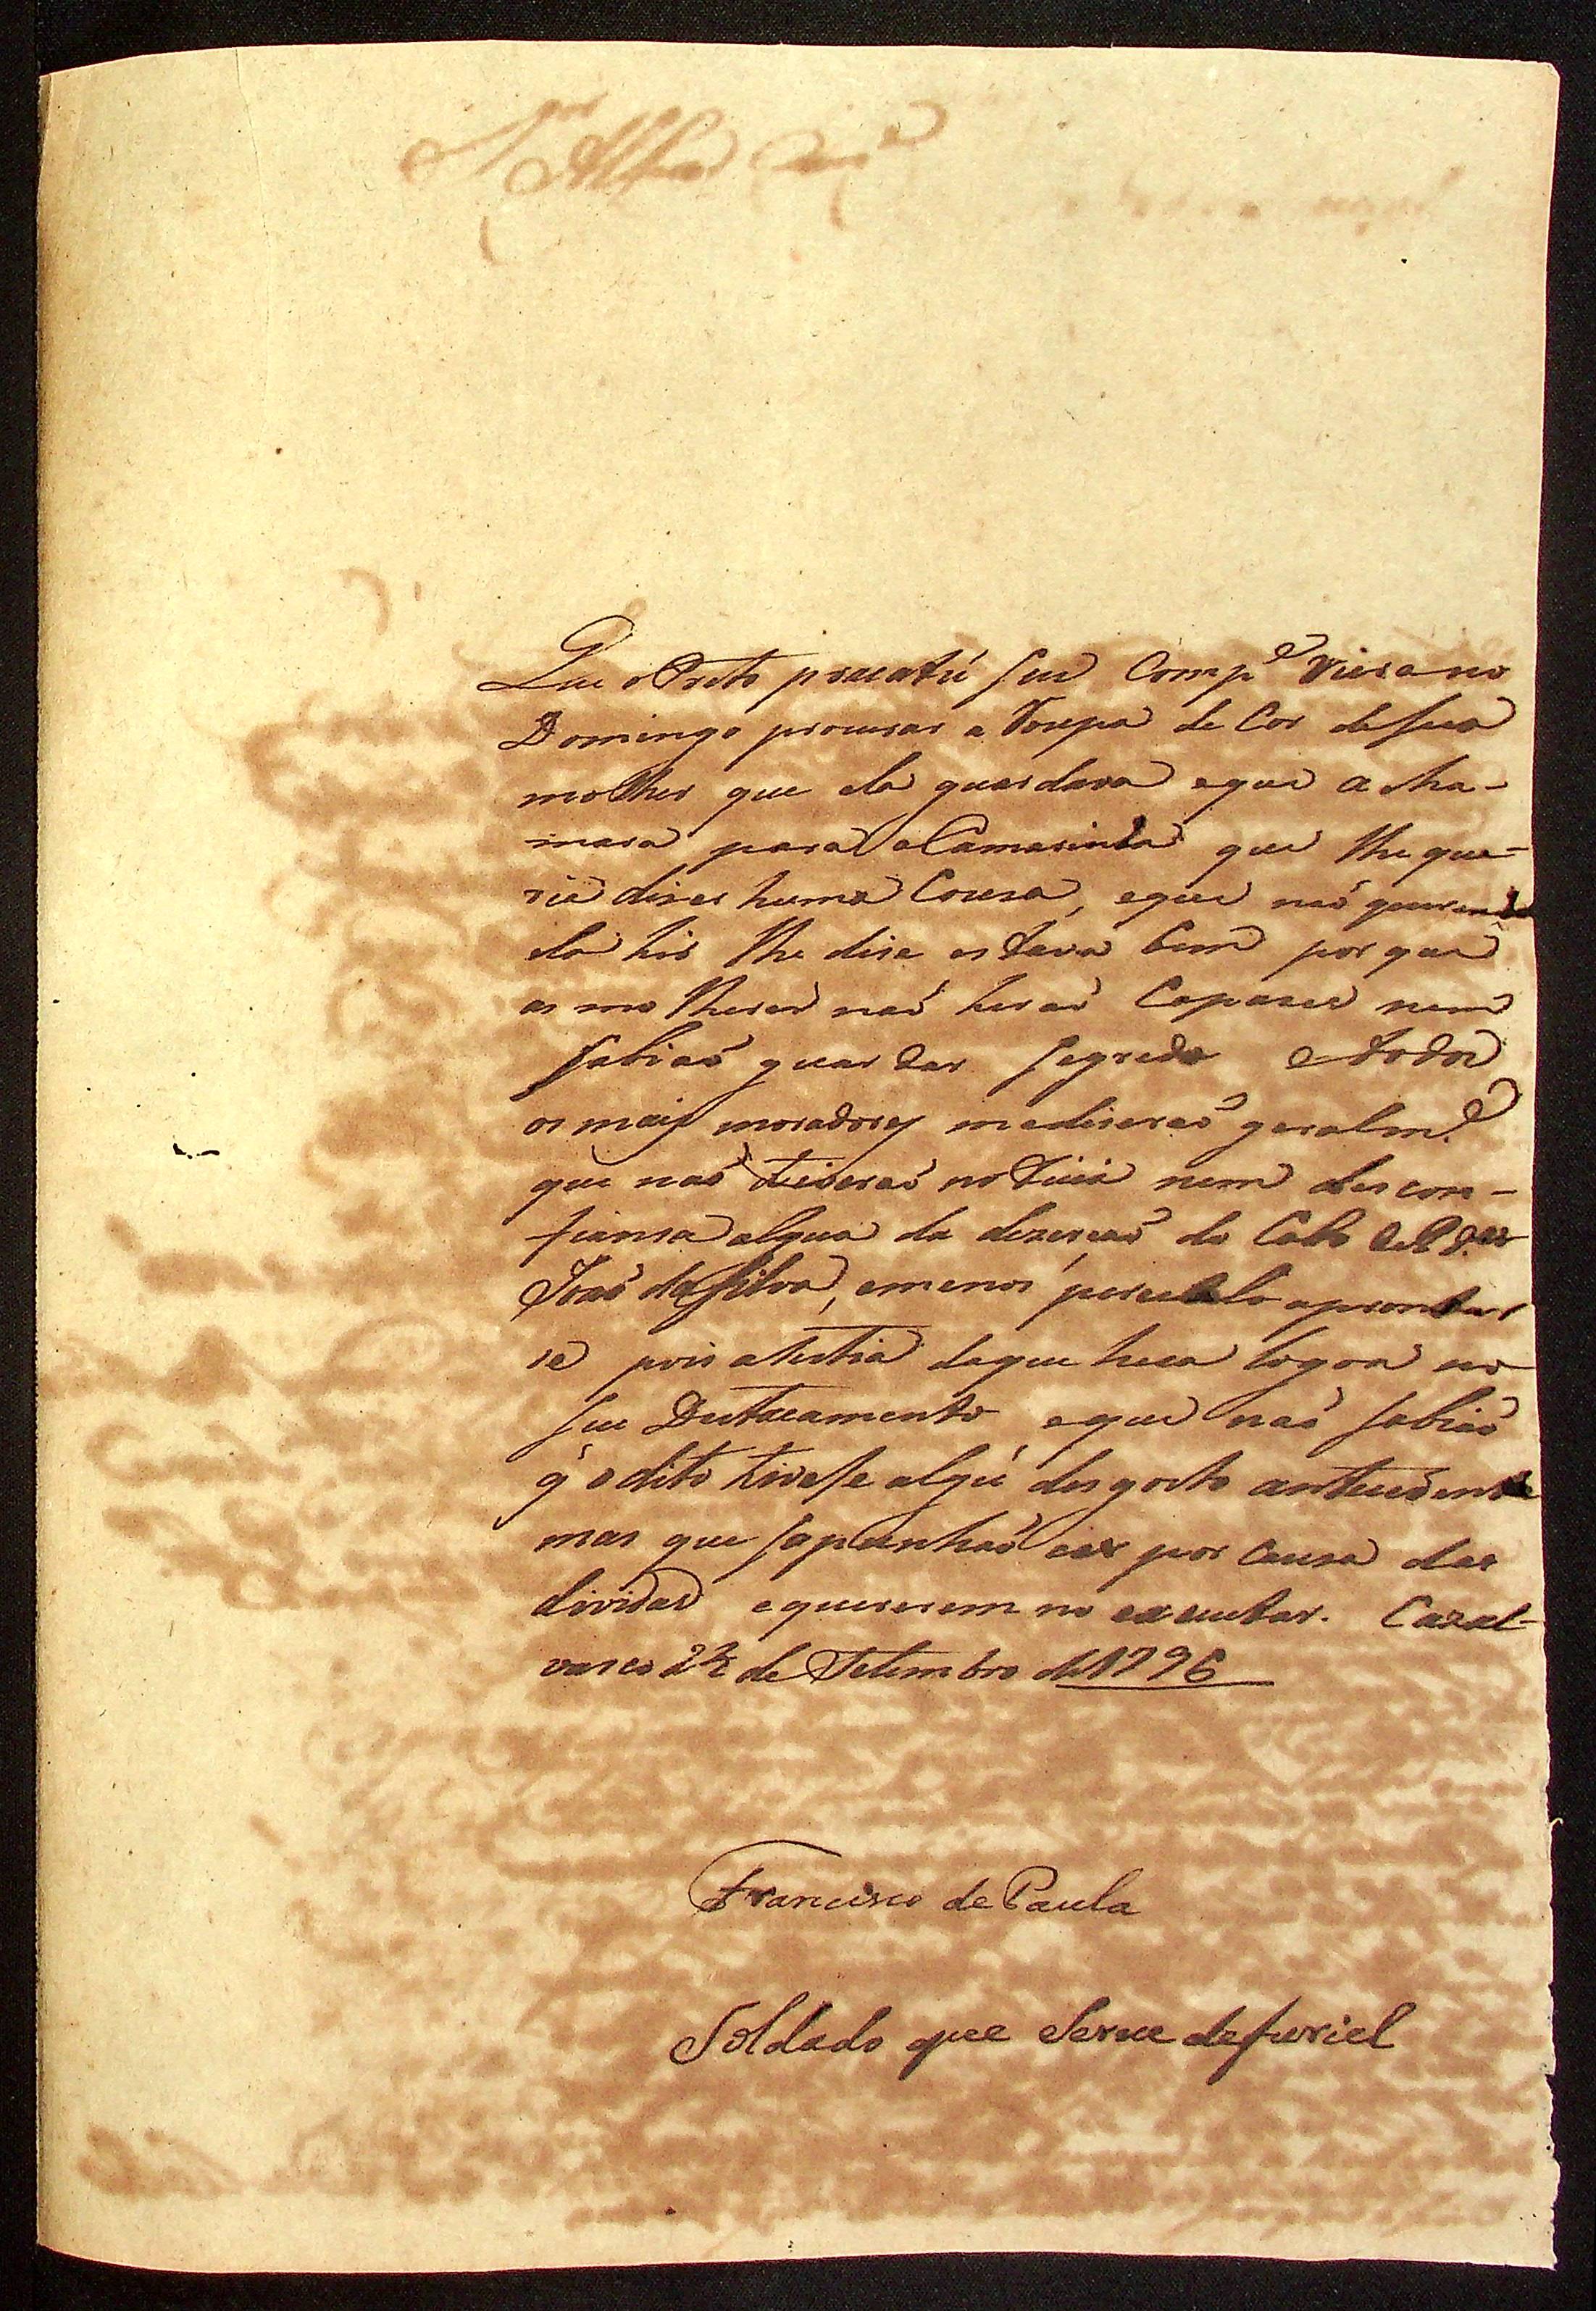 Que o Preto pscuatú seu Comp.e viera no
Domingo procurar a Roupa de Cor de sua
molher que ela guardava eque a cha-
mara para a Camarinha que lhe que-
ria dizer huma Couza, eque naõ querendo
ela hir lhe dise estava bem por que
as molheres naõ heraõ Capazes nem
sabiaõ guardar segredo e todos
os mais moradores mediseraõ geralm.e
que naõ tiveraõ noticia nem descon-
fiansa algua da dezerçaõ do Cabo
Joaõ da silva, emenos aprontar
se pois asistia daquela lagoa no
seu Destacamento eque naõ sabiaõ
q̃ o dito tivese algũ desgosto antecedente
mas que sopunhaõ ser por causa das
dividas equererem no executar. Cazal-
vasco 22 de Setembro de 1796
Francisco de Paula
Soldado que Serve de furiel